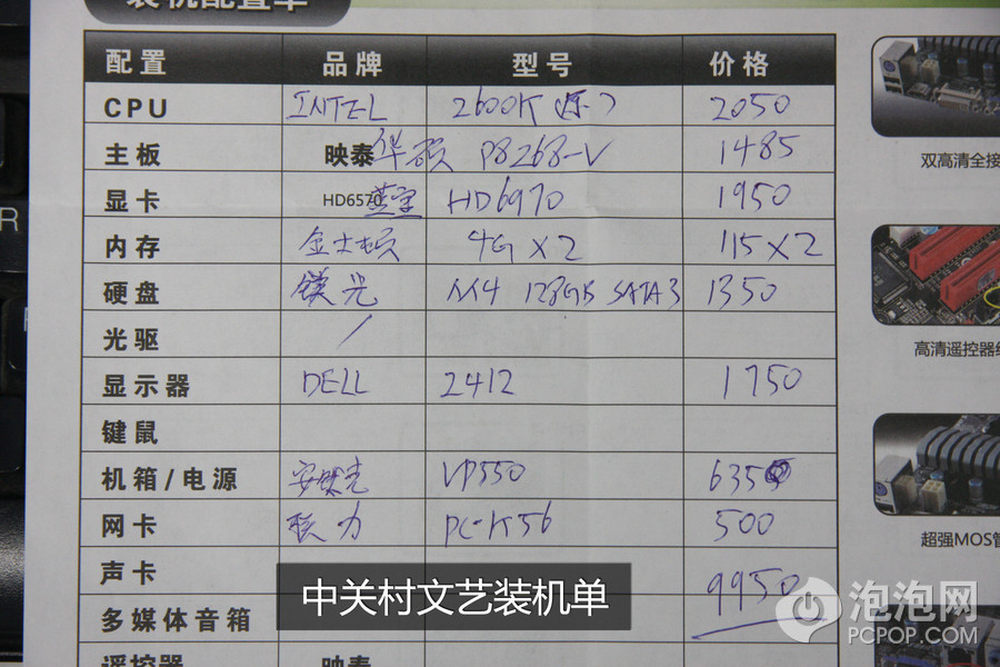 装机配置单
配置 品牌 型号 价格
CPU INTEL 2600K (原) 2050
主板 映泰 华硕 P8Z68-V 1485
显卡 HD6570 蓝宝 HD6970 1950
内存 金士顿 4G X 2 115 X 2
硬盘 镁光 M4 128GB SATA3 1350
光驱 /
显示器 DELL 2412 1750
键鼠
机箱/电源 安钛克 VP550 635
网卡 联力 PC-K56 500
声卡
9950
多媒体音箱
遥控器 映泰
双高清全接
高清遥控器
超强MOS管
R
中关村文艺装机单
泡泡网
PCPOP.COM